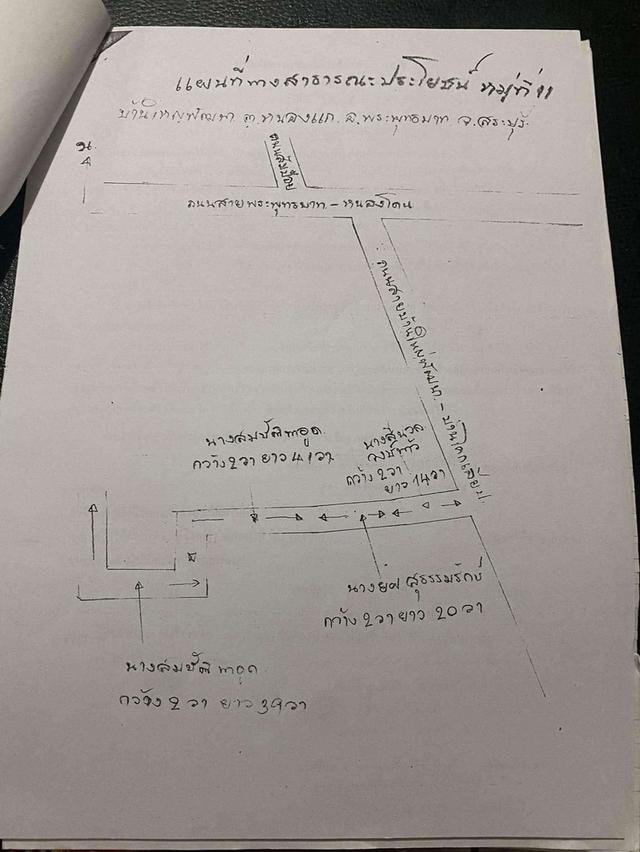 แผนที่ทางสาธารณะประโยชน์ หมู่ที่ 11
ต.หนองแก อ.พระพุทธบาท จ.สระบุรี
น.
ถนนสายพระพุทธบาท - หนองโดน
ถนนสายบ้านใหม่พัฒนา - บ้าน
นางสมบัติ
กว้าง 2 วา ยาว 41 วา
นางสีนวล
กว้าง 2 วา
ยาว 14 วา
สุธรรมรักษ์
กว้าง 2 วา ยาว 20 วา
นางสมบัติ
กว้าง 2 วา ยาว 39 วา